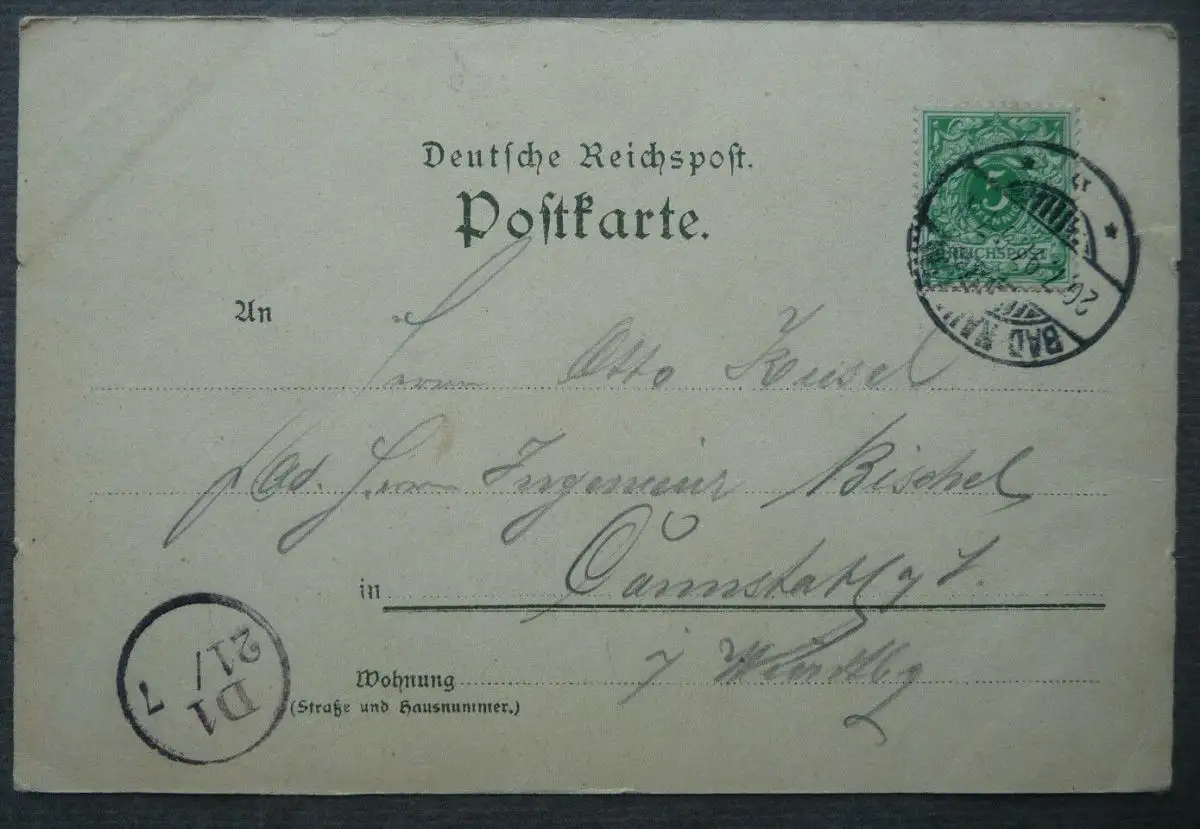 Deutsche Reichspost.
Postkarte.
5
REICHSPOST
BAD NAU
An Herrn Otto Keusel
Ad. Herrn Ingenieur Bischel
in Cannstatt a/
i Würtbg
Wohnung
(Straße und Hausnummer.)
D1
21/7